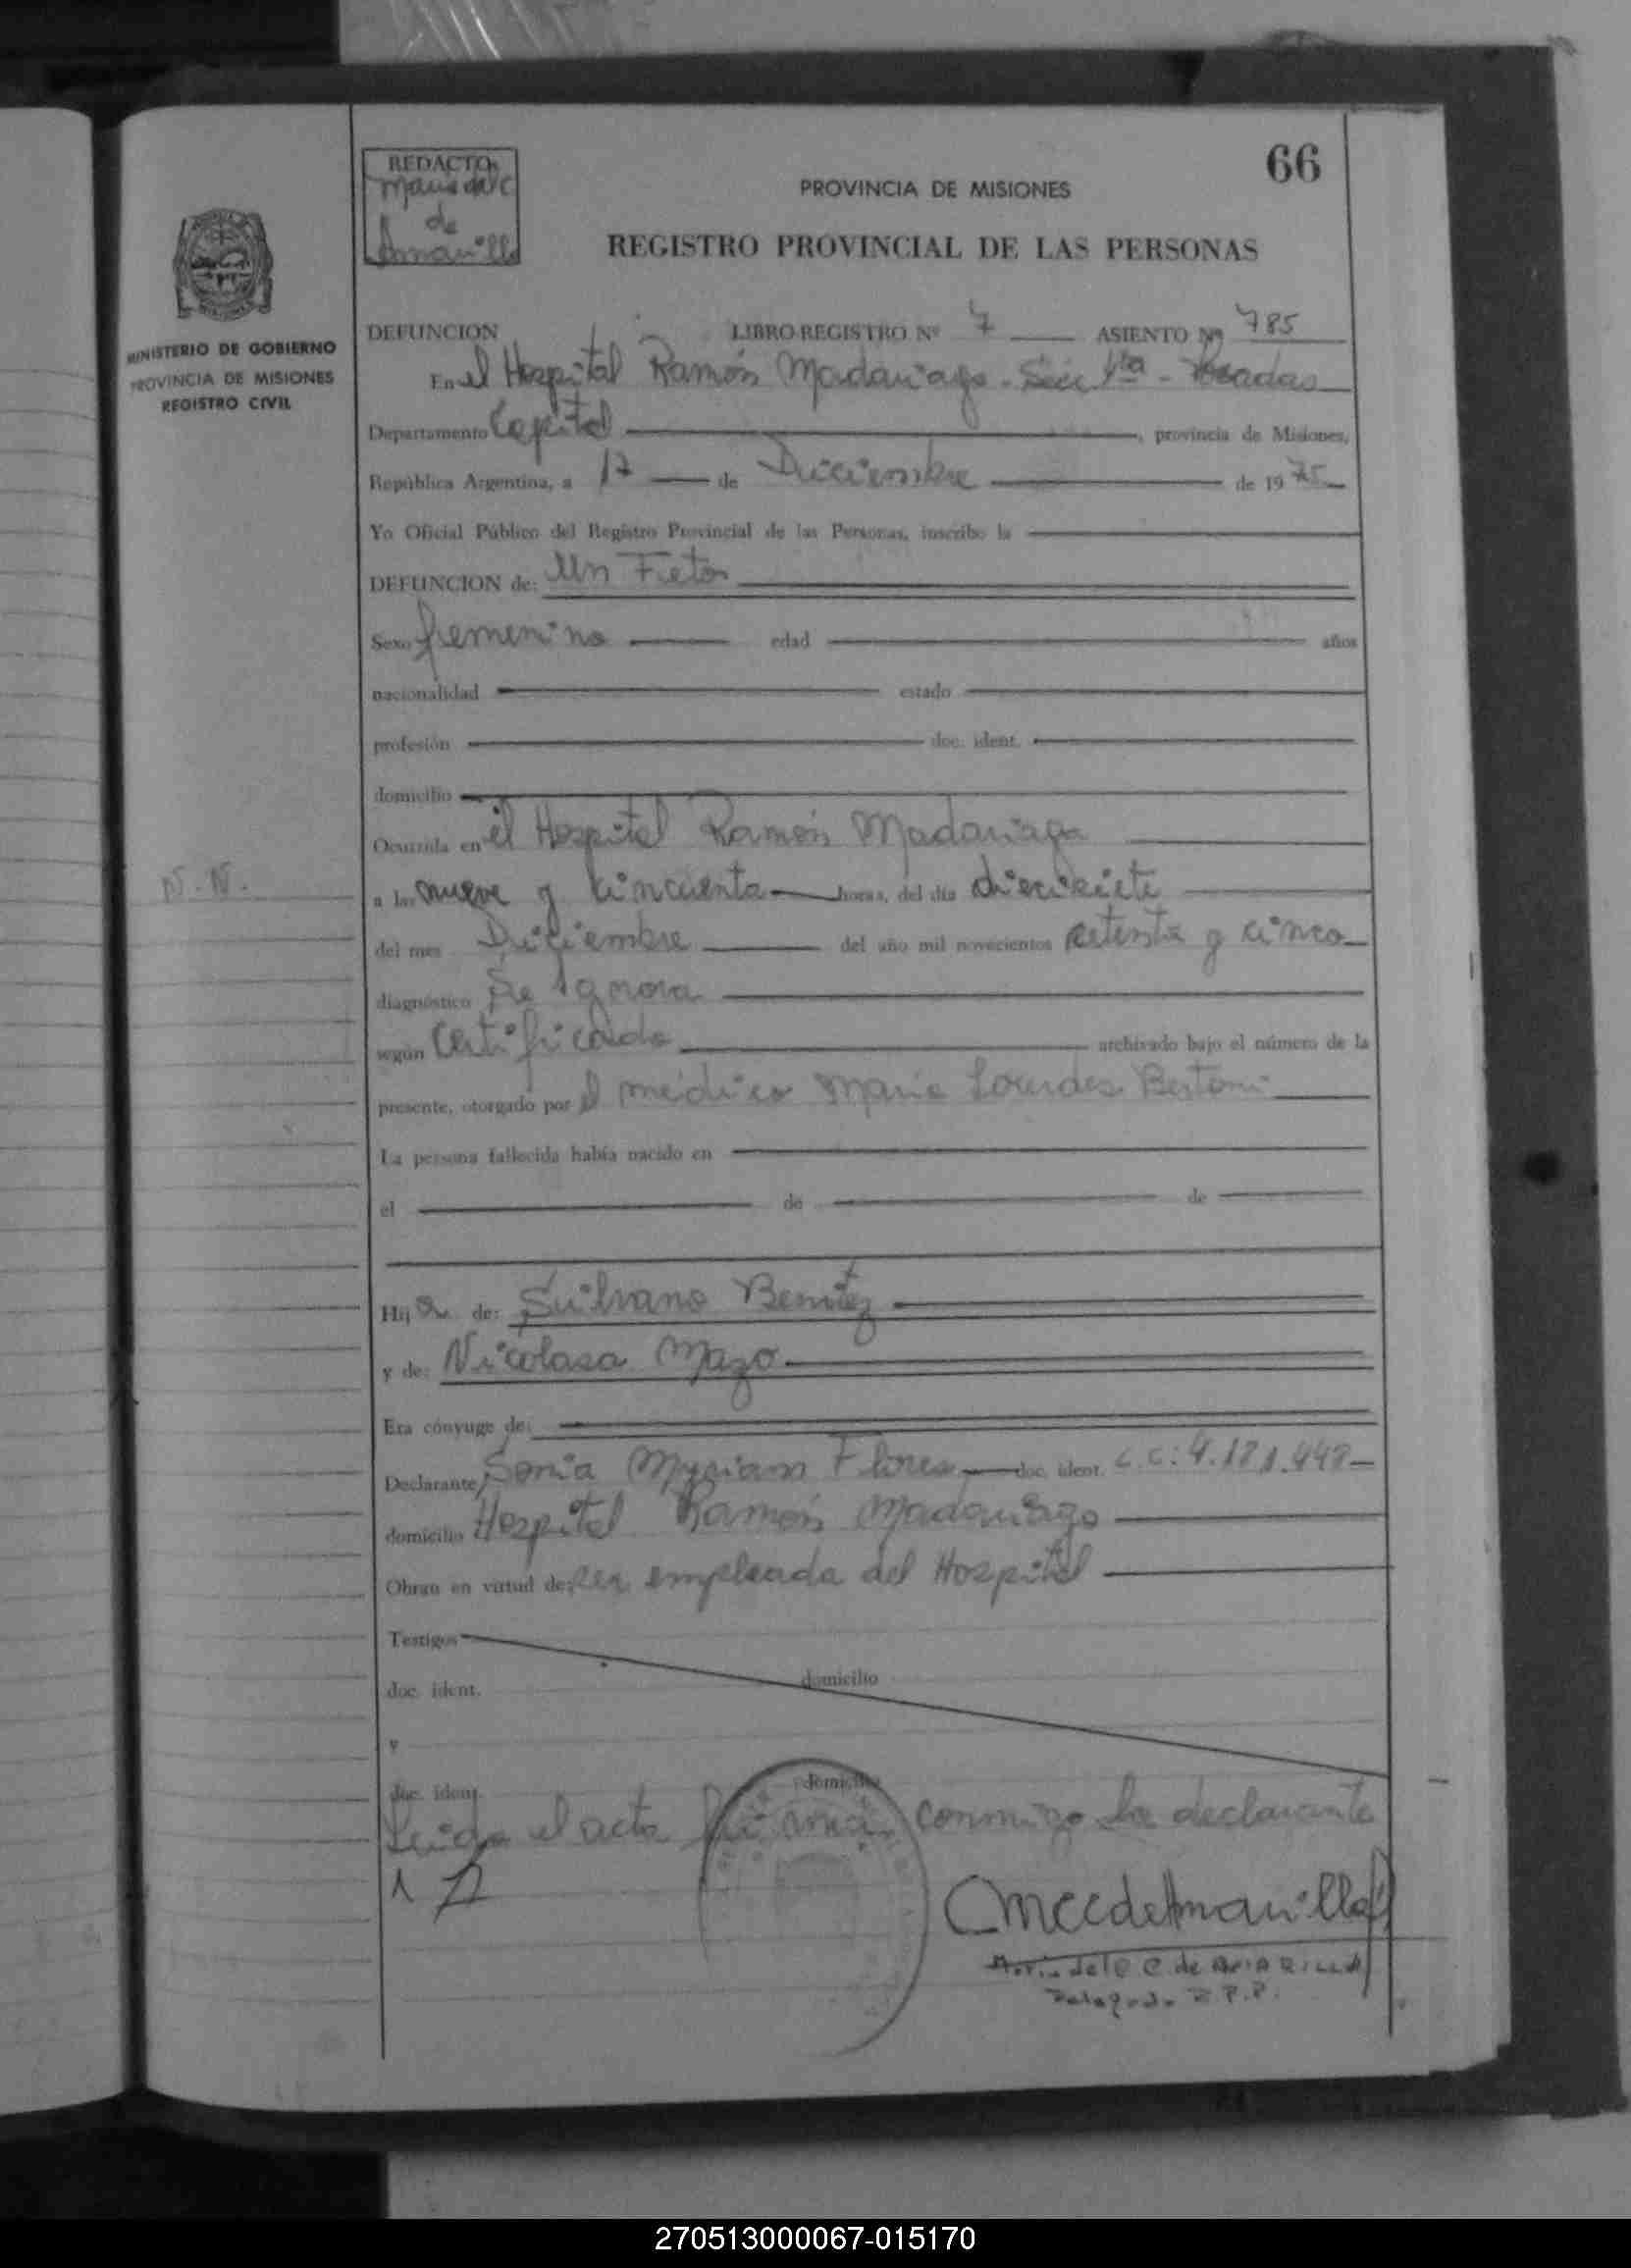 66
REDACTOR
Maria del C
de
Amarilla
PROVINCIA DE MISIONES
REGISTRO PROVINCIAL DE LAS PERSONAS
MINISTERIO DE GOBIERNO
PROVINCIA DE MISIONES
REGISTRO CIVIL
DEFUNCION LIBRO-REGISTRO Nº 7 ASIENTO Nº 785
En el Hospital Ramón Madariaga - Sec - Posadas
Departamento Capital, provincia de Misiones,
República Argentina, a 17 de Diciembre de 1975
Yo Oficial Público del Registro Provincial de las Personas, inscribo la
DEFUNCION de: Un Feto
Sexo femenino edad años
nacionalidad estado
profesión doc. ident.
domicilio
Ocurrida en el Hospital Ramón Madariaga
N.N.
a las nueve y cincuenta horas, del dia diecisiete
del mes Diciembre del año mil novecientos setenta y cinco
diagnóstico Se Ignora
según Certificado archivado bajo el número de la
presente, otorgado por el médico Maria Lourdes Bertoni
La persona fallecida había nacido en
el de de
Hija de: Silvano Benitez
y de: Nicolasa Mazo
Era cónyuge de:
Declarante Sonia Myriam Flores doc. ident. C.C: 4.181.448
domicilio Hospital Ramón Madariaga
Obran en virtud de: ser empleada del Hospital
Testigos
doc. ident. domicilio
y
doc. ident. domicilio
Leida el acta firma conmigo la declarante
Mccdeamarilla
Maria del C C. de AMARILLA
Delegada R.P.P.
270513000067-015170